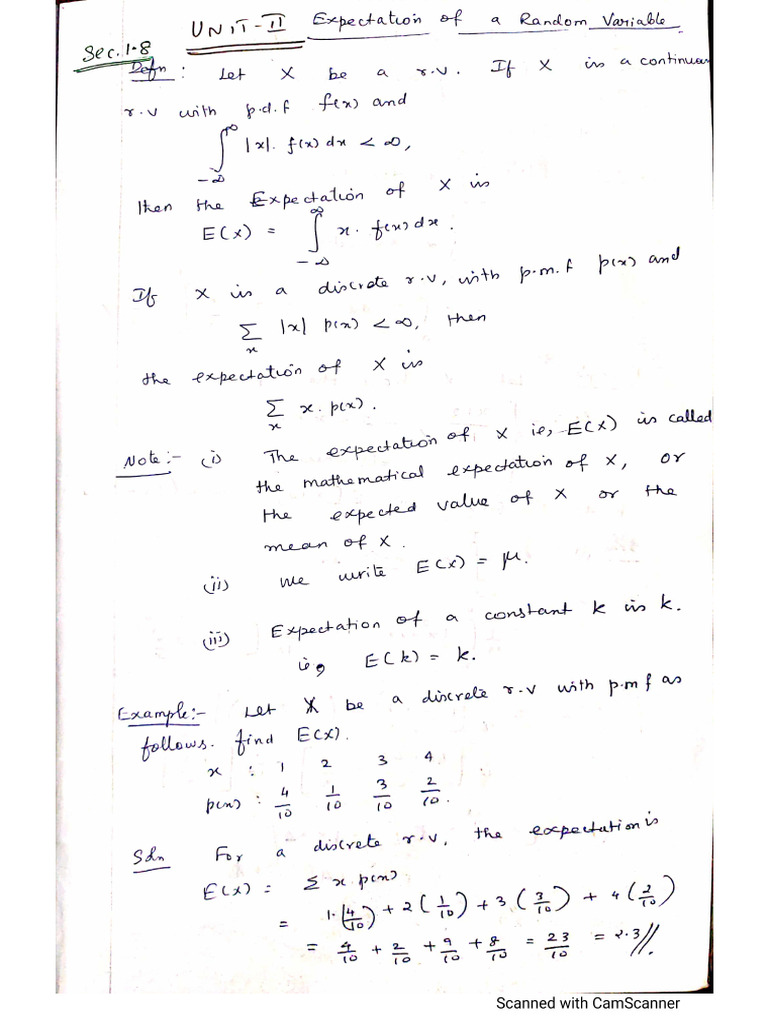 UNIT-II Expectation of a Random Variable
Sec.1.8
Defn: Let X be a r.v. If X is a continuous
r.v with p.d.f f(x) and
∫_{-∞}^{∞} |x|. f(x) dx < ∞,
Then the Expectation of X is
E(X) = ∫_{-∞}^{∞} x. f(x) dx.
If X is a discrete r.v, with p.m.f p(x) and
Σ_x |x| p(x) < ∞, then
the expectation of X is
Σ_x x. p(x).
Note:- (i) The expectation of X ie, E(X) is called
the mathematical expectation of X, or
the expected value of X or the
mean of X.
(ii) We write E(X) = μ.
(iii) Expectation of a constant k is k.
ie, E(k) = k.
Example:- Let X be a discrete r.v with p.m f as
follows. find E(X).
x : 1 2 3 4
p(x) : 4/10 1/10 3/10 2/10.
Soln For a discrete r.v, the expectation is
E(X) = Σ x p(x)
= 1.(4/10) + 2(1/10) + 3(3/10) + 4(2/10)
= 4/10 + 2/10 + 9/10 + 8/10 = 23/10 = 2.3//.
Scanned with CamScanner